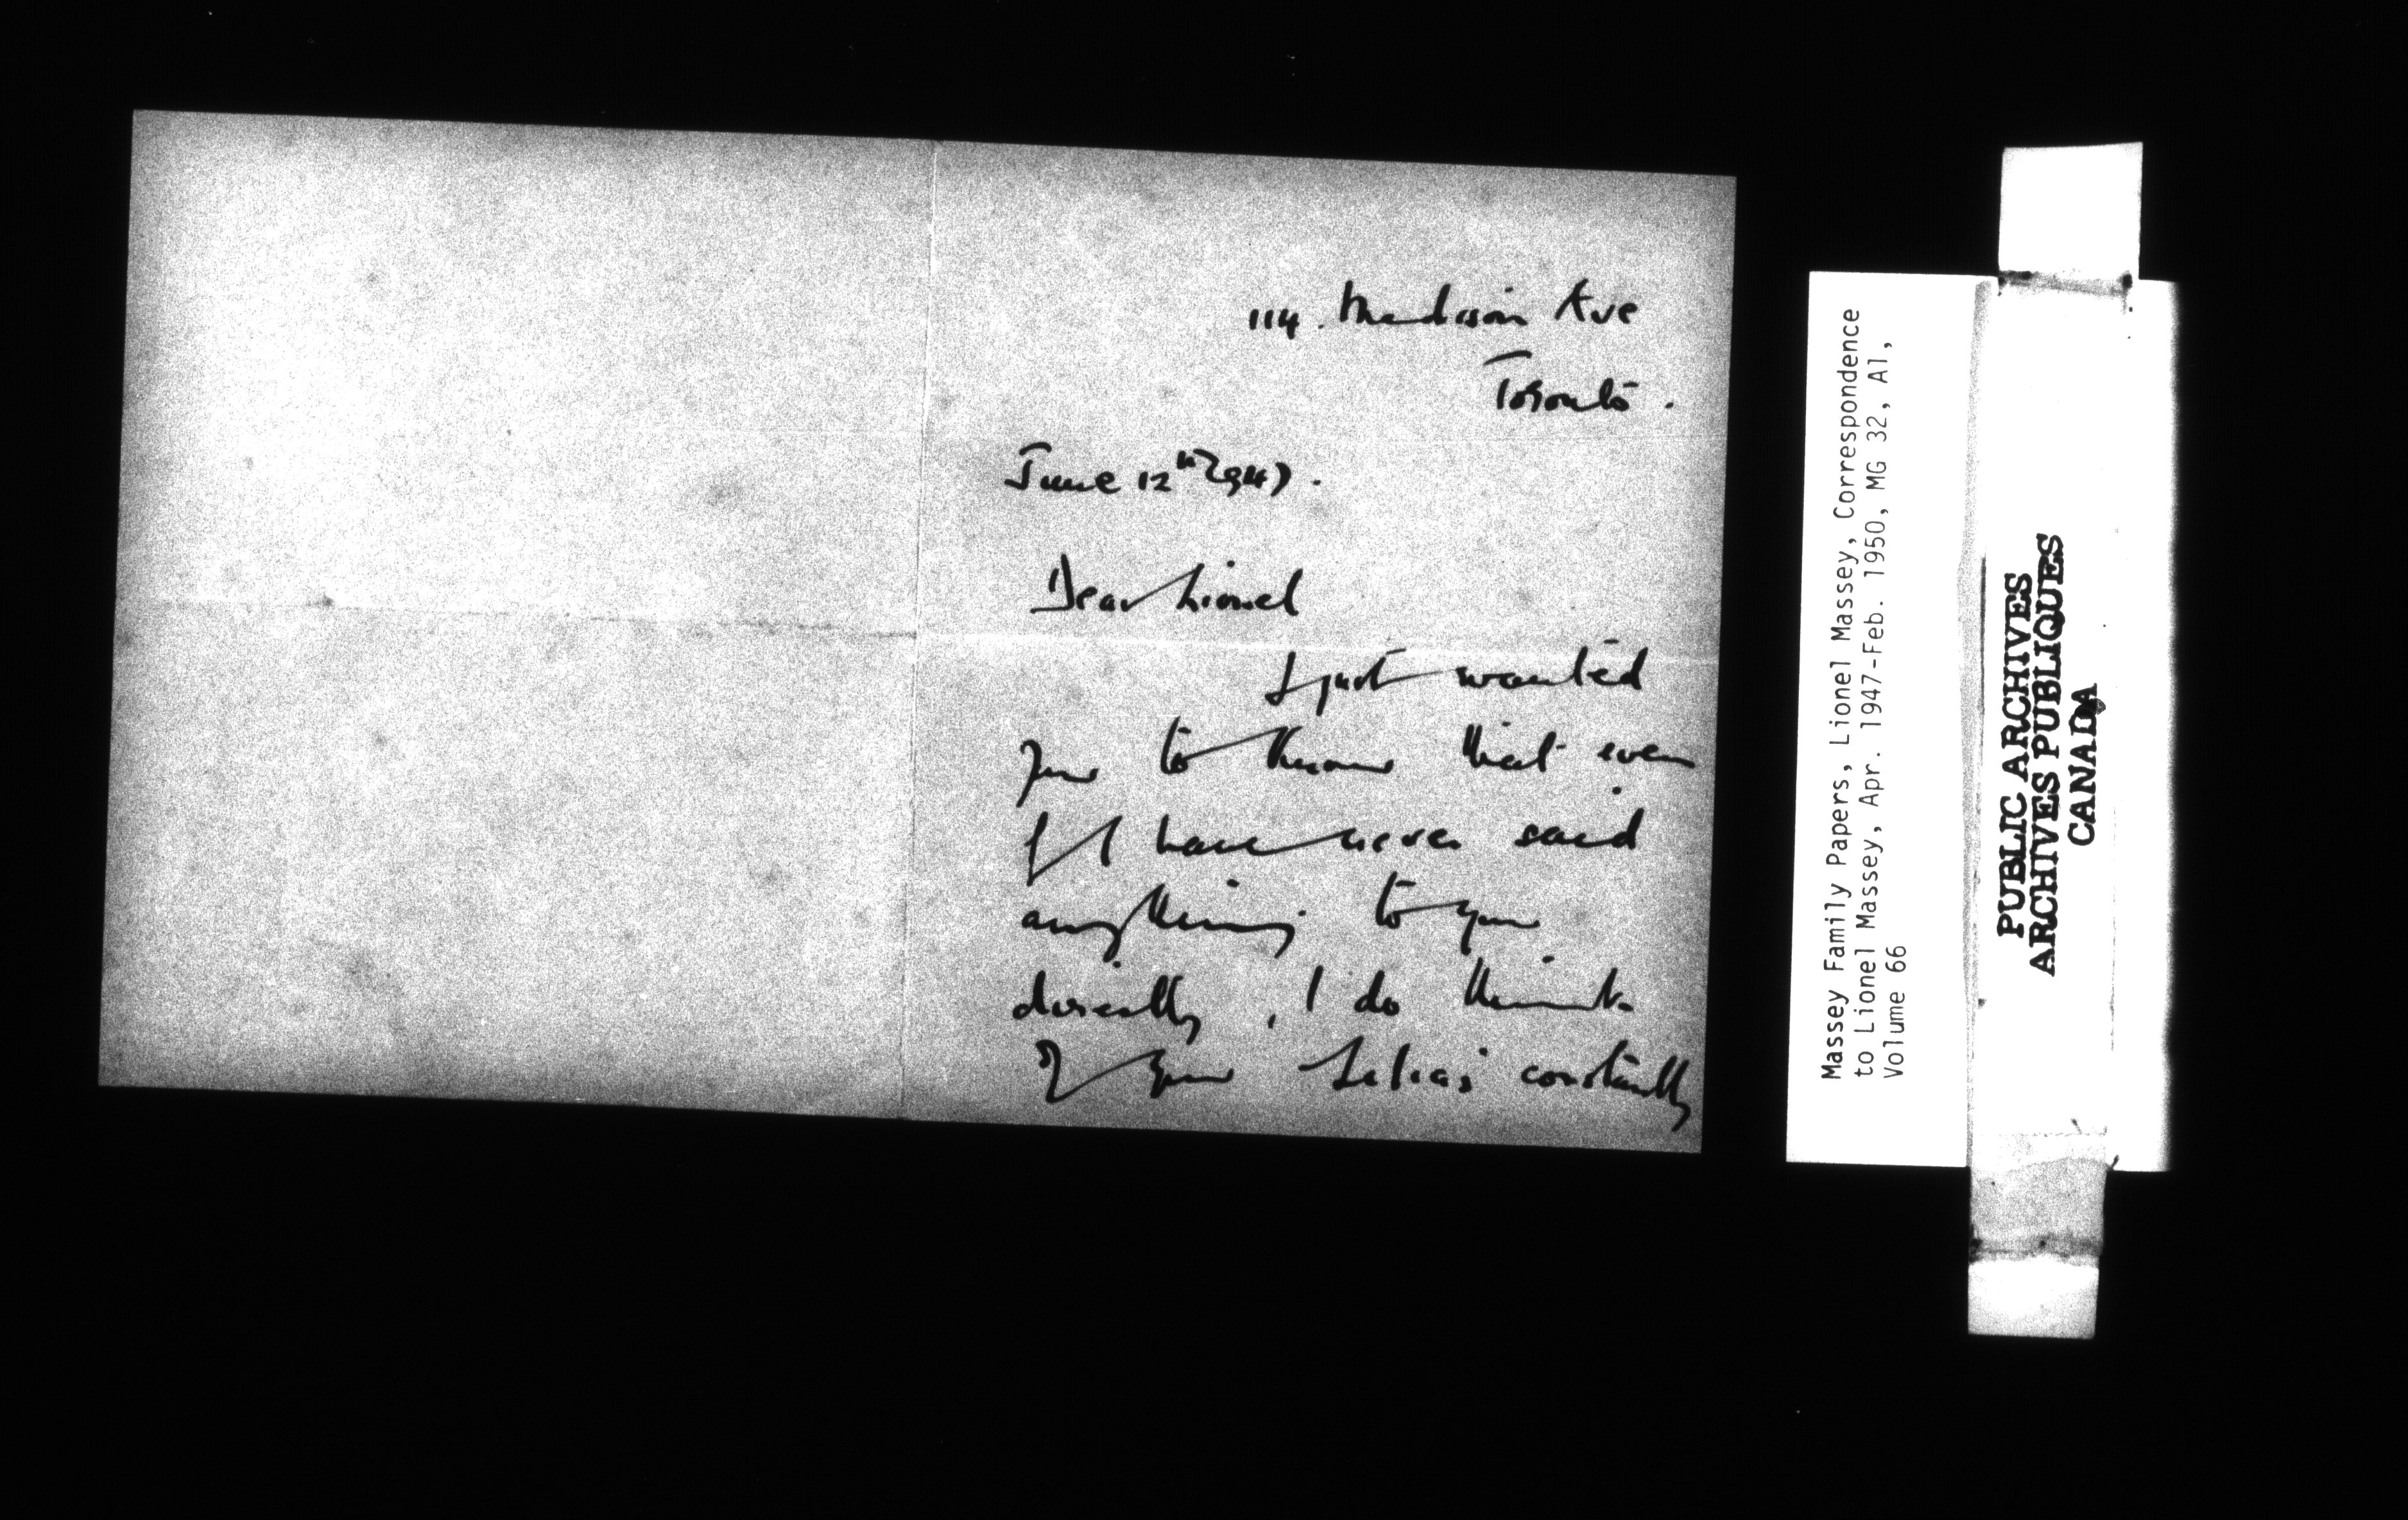 114. Madison Ave
Toronto.
June 12th 1947.
Dear Lionel
I just wanted
you to know that even
if I have never said
anything to you
directly, I do think
of your Lilias constantly
Massey Family Papers, Lionel Massey, Correspondence
to Lionel Massey, Apr. 1947-Feb. 1950, MG 32, A1,
Volume 66
PUBLIC ARCHIVES
ARCHIVES PUBLIQUES
CANADA